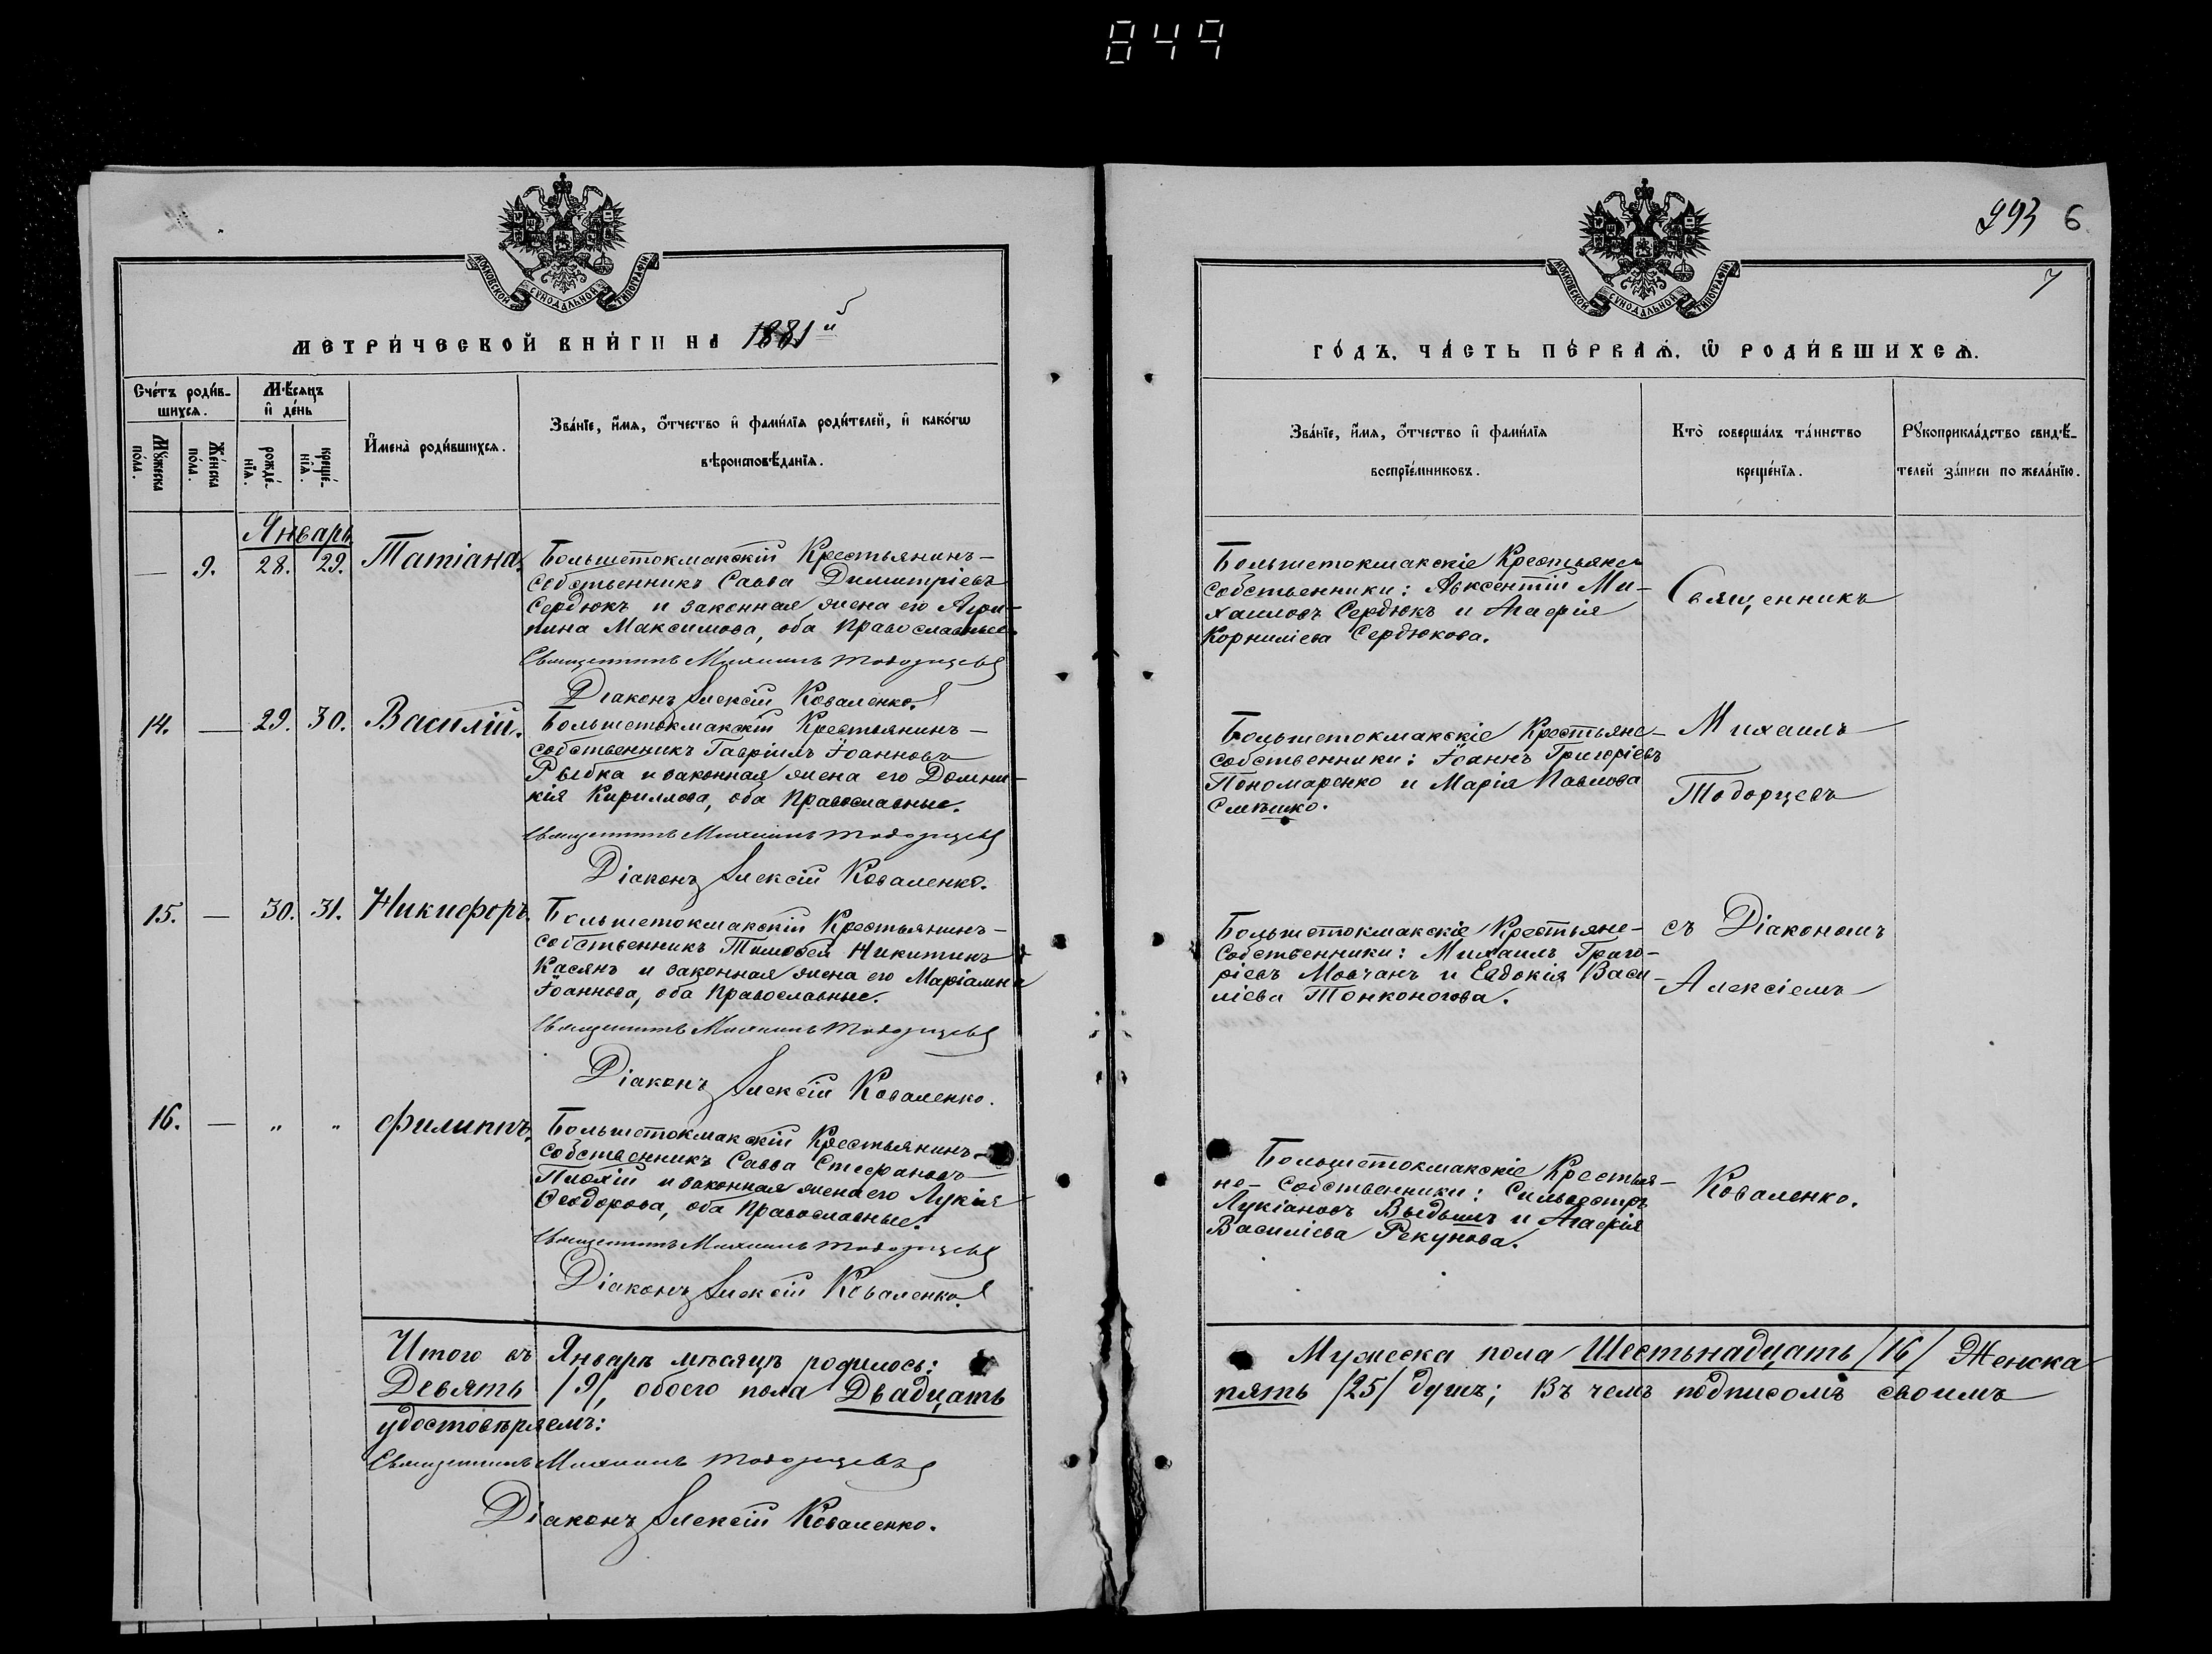 849
993 6
7
МОСКОВСКОЙ СѴНОДАЛЬНОЙ ТИПОГРАФІИ
МЕТРИ́ЧЕСКОЙ КНИ́ГИ НА 1881й
Сче́тъ роди́в-
шихсѧ.
Мѣ́сѧцъ
и҆ де́нь
Мꙋ́жеска
по́ла.
Же́нска
по́ла.
рожде́-
нїѧ.
креще́-
нїѧ.
И҆мена̀ роди́вшихсѧ.
Зва́нїе, и҆́мѧ, ѻ҆́тчество и҆ фами́лїѧ роди́телей, и҆ како́гѡ
вѣроисповѣ́данїѧ.
Январь
— 9. 28. 29. Татіана.
Большетокмакскій Крестьянинъ-
собственникъ Савва Димитріевъ
Сердюкъ и законная жена его Агри-
пина Максимова, оба Православные.
Священникъ Михаилъ Тодорцевъ
Діаконъ Алексій Коваленко.
14. — 29. 30. Василій.
Большетокмакскій Крестьянинъ-
собственникъ Гавріилъ Іоанновъ
Рыбка и законная жена его Домни-
кія Кириллова, оба Православные.
Священникъ Михаилъ Тодорцевъ
Діаконъ Алексій Коваленко.
15. — 30. 31. Никифоръ.
Большетокмакскій Крестьянинъ-
собственникъ Тимофей Никитинъ
Касянъ и законная жена его Маріамна
Іоаннова, оба Православные.
Священникъ Михаилъ Тодорцевъ
Діаконъ Алексій Коваленко.
16. — " " Филиппъ.
Большетокмакскій Крестьянинъ-
собственникъ Савва Стефановъ
Плохій и законная жена его Лукія
Ѳеодорова, оба Православные.
Священникъ Михаилъ Тодорцевъ
Діаконъ Алексій Коваленко.
Итого въ Январѣ мѣсяцѣ родилось:
Девять /9/, обоего пола Двадцать
удостовѣряемъ:
Священникъ Михаилъ Тодорцевъ
Діаконъ Алексій Коваленко.
МОСКОВСКОЙ СѴНОДАЛЬНОЙ ТИПОГРАФІИ
ГО́ДЪ, ЧА́СТЬ ПЕ́РВАѦ, Ѡ҆ РОДИ́ВШИХСѦ.
Зва́нїе, и҆́мѧ, ѻ҆́тчество и҆ фами́лїѧ
воспрїе́мниковъ.
Кто̀ соверша́лъ та́инство
креще́нїѧ.
Рꙋкоприкла́дство свидѣ́-
телей за́писи по жела́нїю.
Большетокмакскіе Крестьяне
собственники: Авксентій Ми-
хаиловъ Сердюкъ и Агафія
Корниліева Сердюкова.
Большетокмакскіе Крестьяне-
собственники: Іоаннъ Григоріевъ
Пономаренко и Марія Павлова
Смѣшко.
Большетокмакскіе Крестьяне-
собственники: Михаилъ Григо-
ріевъ Мовчанъ и Евдокія Васи-
ліева Тонконогова.
Большетокмакскіе Крестья-
не-собственники: Сильвестръ
Лукіановъ и Агафія
Василіева Рекунова.
Священникъ
Михаилъ
Тодорцевъ
съ Діакономъ
Алексіемъ
Коваленко.
Мужеска пола Шестьнадцать /16/ Женска
пять /25/ душъ; Въ чемъ подписомъ своимъ